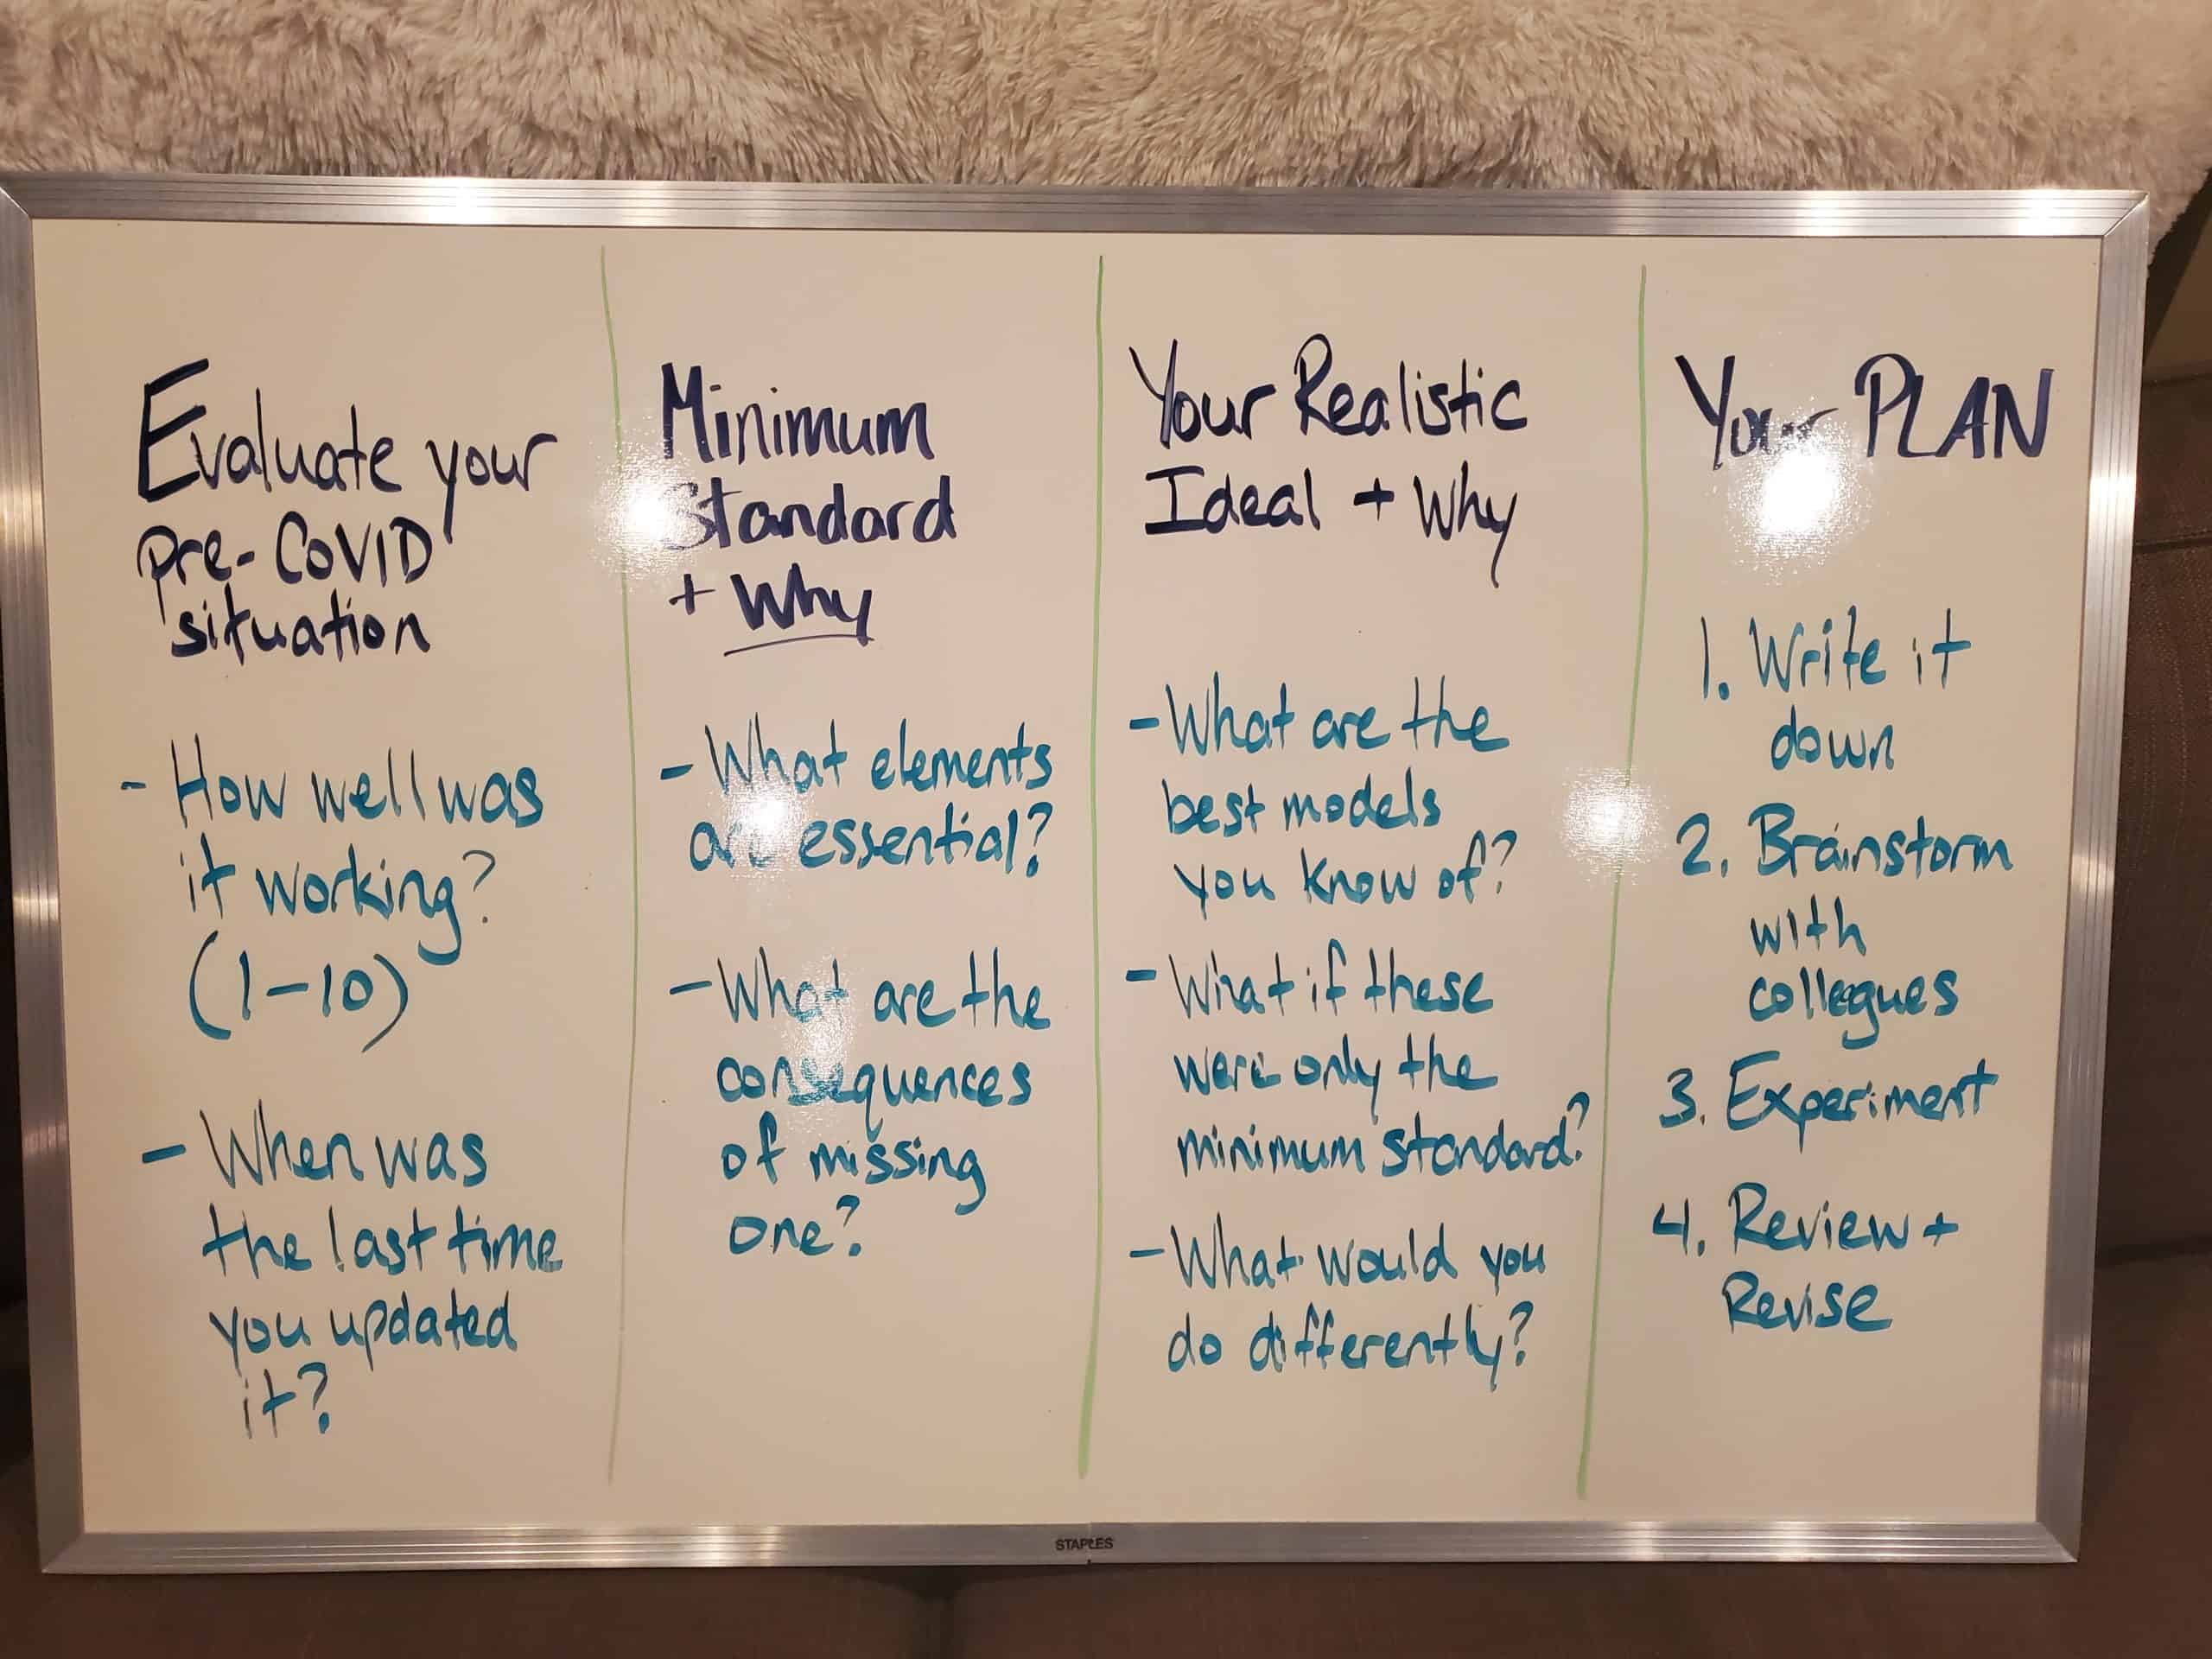 Evaluate your
pre-COVID
situation
- How well was
it working?
(1-10)
- When was
the last time
you updated
it?
Minimum
Standard
+ Why
- What elements
are essential?
- What are the
consequences
of missing
one?
Your Realistic
Ideal + Why
- What are the
best models
you know of?
- What if these
were only the
minimum standard?
- What would you
do differently?
Your PLAN
1. Write it
down
2. Brainstorm
with
collegues
3. Experiment
4. Review +
Revise
STAPLES